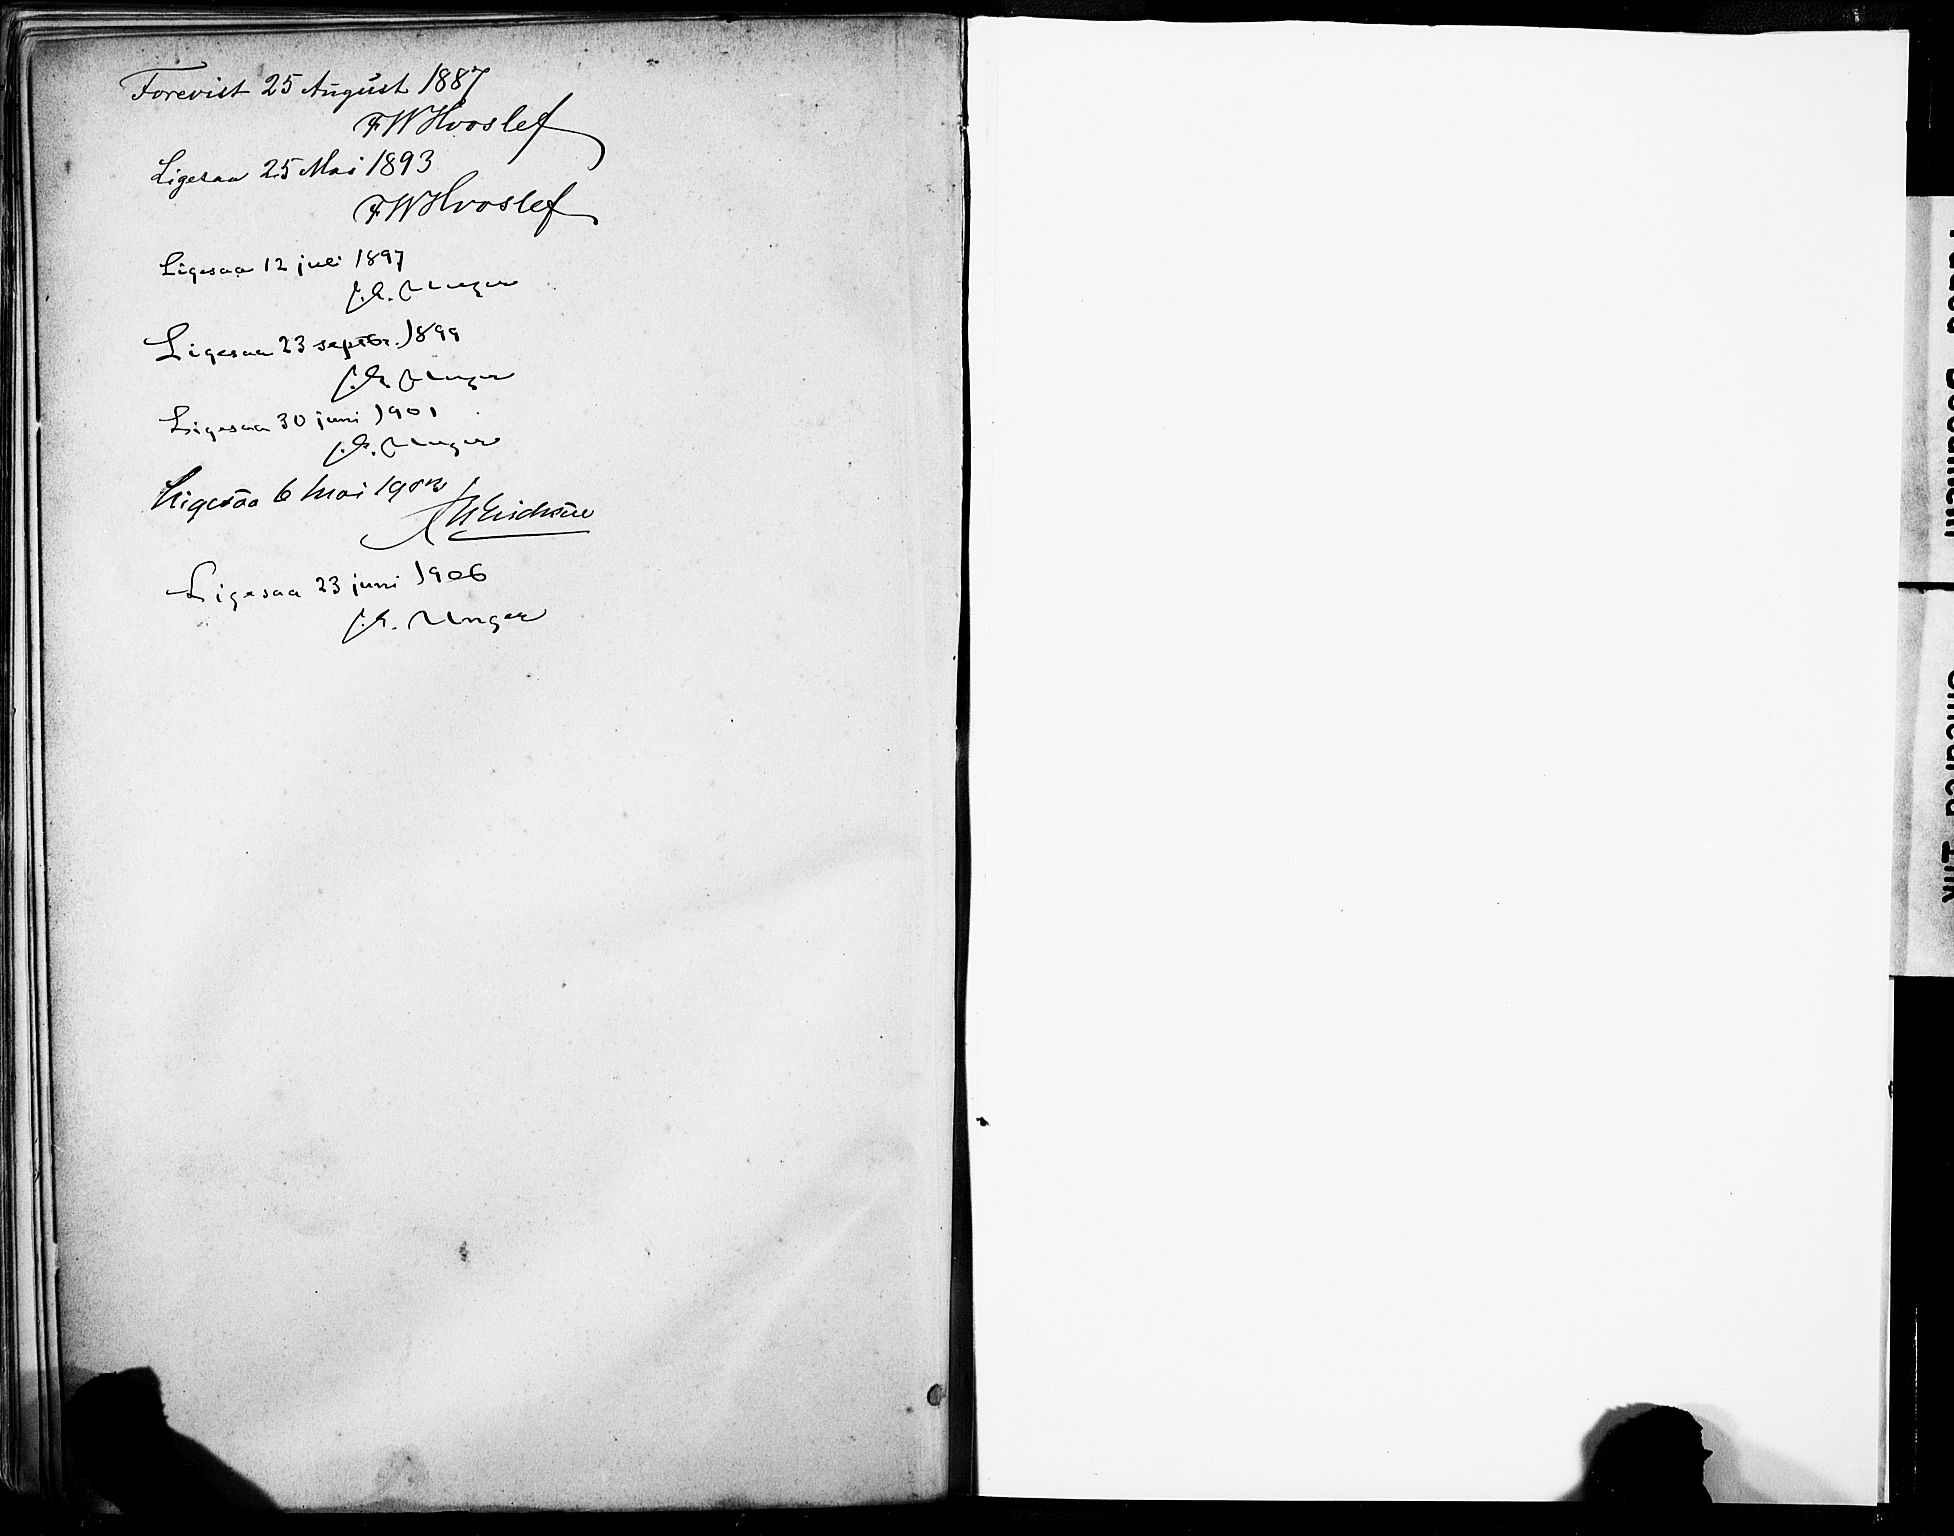 Forevist 25 August 1887
FWHvoslef
Ligesaa 25 Mai 1893
FWHvoslef
Ligesaa 12 juli 1897
J.H. Unger
Ligesaa 23 septbr. 1899
J.H. Unger
Ligesaa 30 juni 1901
J.H. Unger
Ligesaa 6 Mai
Ligesaa 23 juni 1906
J.H. Unger